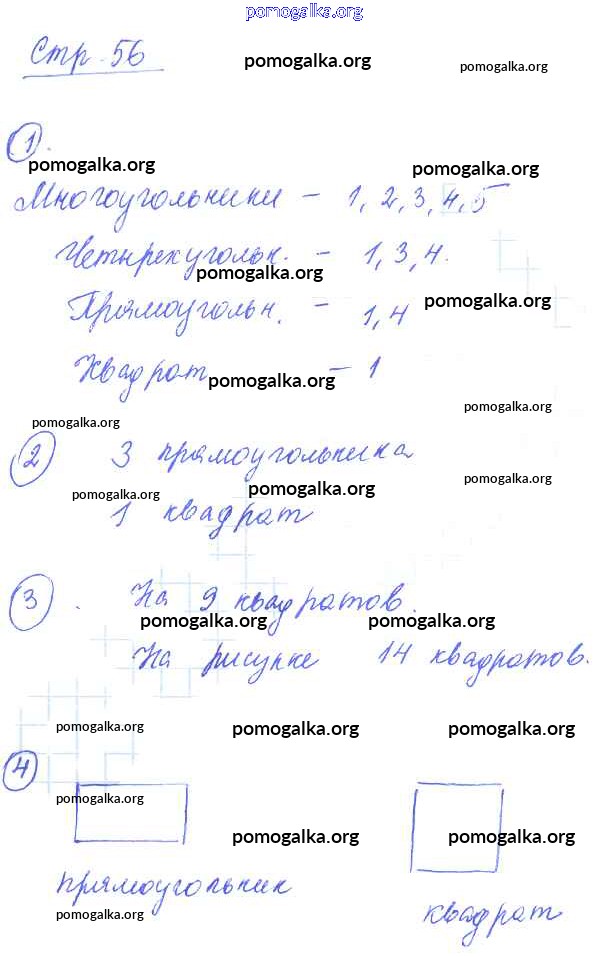 pomogalka.org
Стр. 56
pomogalka.org
pomogalka.org
1.
pomogalka.org
pomogalka.org
Многоугольники - 1, 2, 3, 4, 5
Четырехугольн. - 1, 3, 4.
pomogalka.org
Прямоугольн. - 1, 4
pomogalka.org
Квадрат - 1
pomogalka.org
pomogalka.org
pomogalka.org
2 3 прямоугольника
pomogalka.org
pomogalka.org
pomogalka.org
1 квадрат
3. На 9 квадратов.
pomogalka.org
pomogalka.org
На рисунке 14 квадратов.
pomogalka.org
pomogalka.org
pomogalka.org
4
pomogalka.org
pomogalka.org
pomogalka.org
прямоугольник
квадрат
pomogalka.org